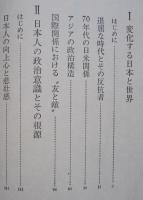 Ⅰ 変化する日本と世界
はじめに
退屈な時代とその反抗者
70年代の日米関係
アジアの政治構造
国際関係における〝友と敵〟
Ⅱ 日本人の政治意識とその根源
はじめに
日本人の向上心と悲壮感